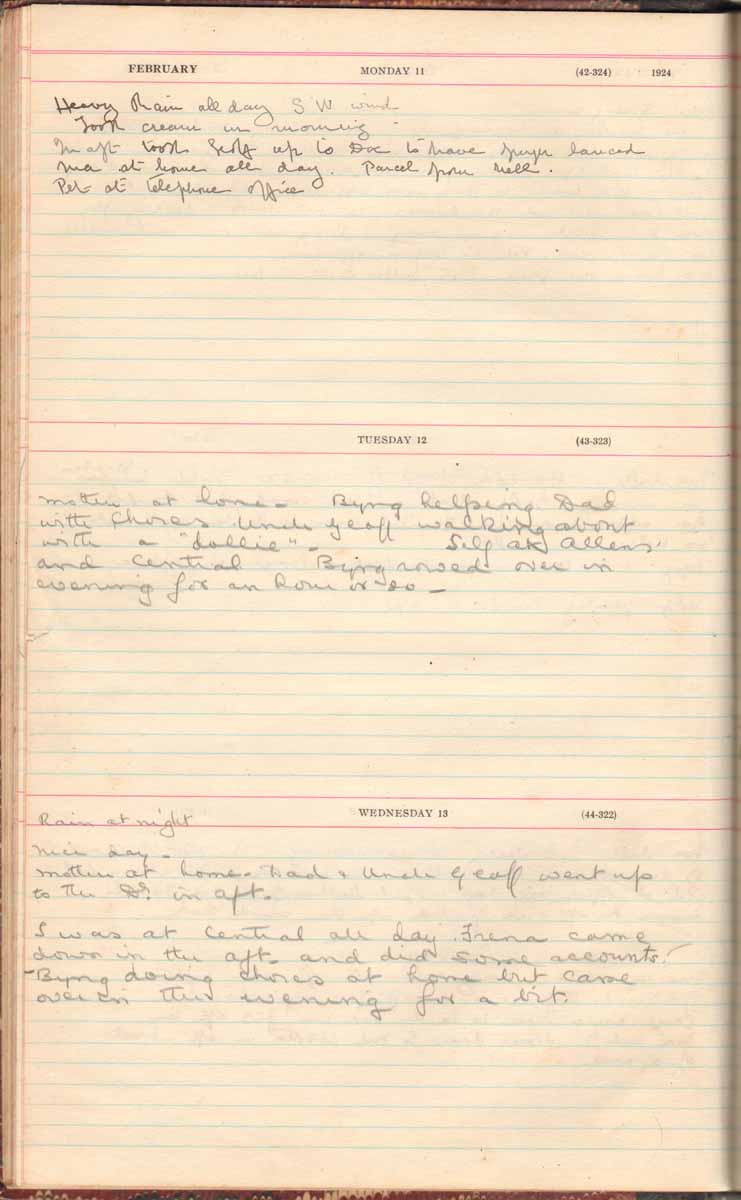 FEBRUARY MONDAY 11 (42-324) 1924
Heavy Rain all day S W wind
Took cream in morning
In aft took Geoff up to Doc to have finger lanced
Ma at home all day. Parcel from Nell.
Pet at telephone office
TUESDAY 12 (43-323)
mother at home - Byng helping Dad
with chores Uncle Geoff walking about
with a "dollie" - Self at Allens'
and Central Byng rowed over in
evening for an hour or so -
WEDNESDAY 13 (44-322)
Rain at night
nice day -
mother at home - Dad & Uncle Geoff went up
to the Dr. in aft.
I was at Central all day. Irena came
down in the aft. and did some accounts.
- Byng doing chores at home but came
over in the evening for a bit.